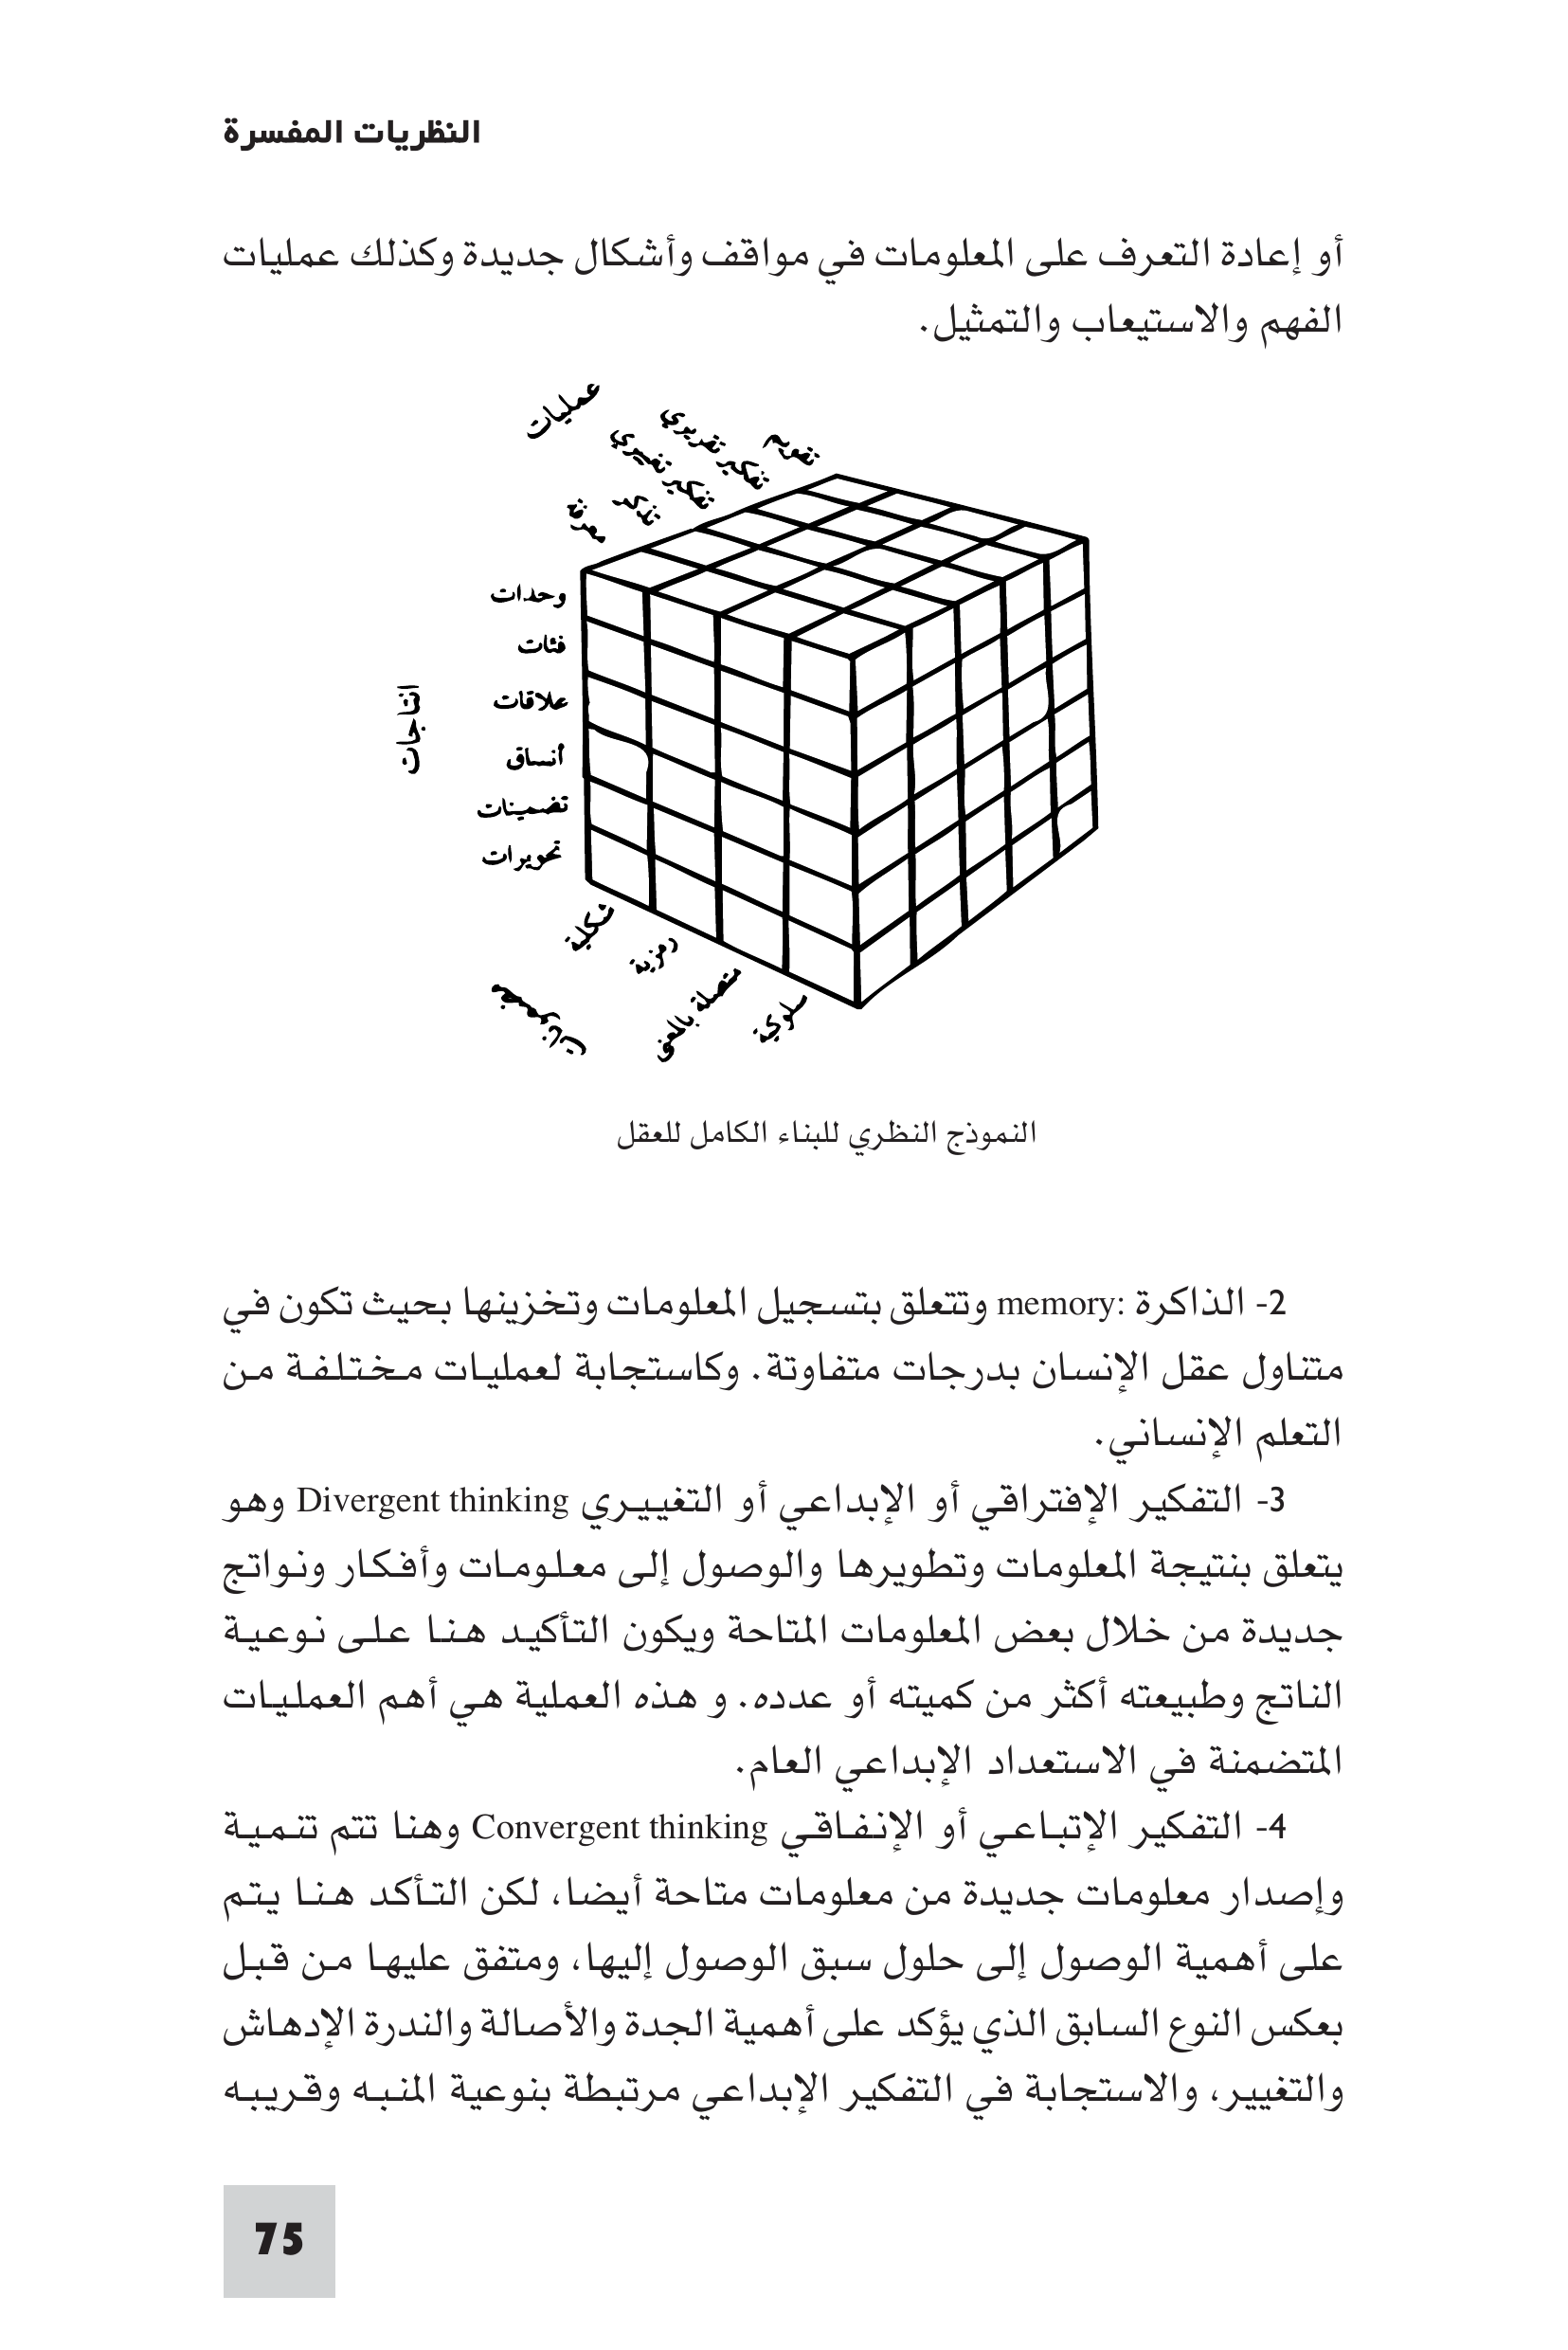 النظريات المفسرة
أو إعادة التعرف على المعلومات في مواقف وأشكال جديدة وكذلك عمليات
الفهم والاستيعاب والتمثيل.
عمليات
تقويم
تفكير تقريري
تفكير تغييري
تذكر
معرفة
وحدات
فئات
علاقات
أنساق
تضمينات
تحويرات
انتاجات
شكلية
رمزية
متصلة بالمعنى
سلوكية
النموذج النظري للبناء الكامل للعقل
2- الذاكرة :memory وتتعلق بتسجيل المعلومات وتخزينها بحيث تكون في
متناول عقل الإنسان بدرجات متفاوتة. وكاستجابة لعمليات مختلفة من
التعلم الإنساني.
3- التفكير الإفتراقي أو الإبداعي أو التغييري Divergent thinking وهو
يتعلق بنتيجة المعلومات وتطويرها والوصول إلى معلومات وأفكار ونواتج
جديدة من خلال بعض المعلومات المتاحة ويكون التأكيد هنا على نوعية
الناتج وطبيعته أكثر من كميته أو عدده. و هذه العملية هي أهم العمليات
المتضمنة في الاستعداد الإبداعي العام.
4- التفكير الإتباعي أو الإنفاقي Convergent thinking وهنا تتم تنمية
وإصدار معلومات جديدة من معلومات متاحة أيضا، لكن التأكد هنا يتم
على أهمية الوصول إلى حلول سبق الوصول إليها، ومتفق عليها من قبل
بعكس النوع السابق الذي يؤكد على أهمية الجدة والأصالة والندرة الإدهاش
والتغيير، والاستجابة في التفكير الإبداعي مرتبطة بنوعية المنبه وقريبه
75